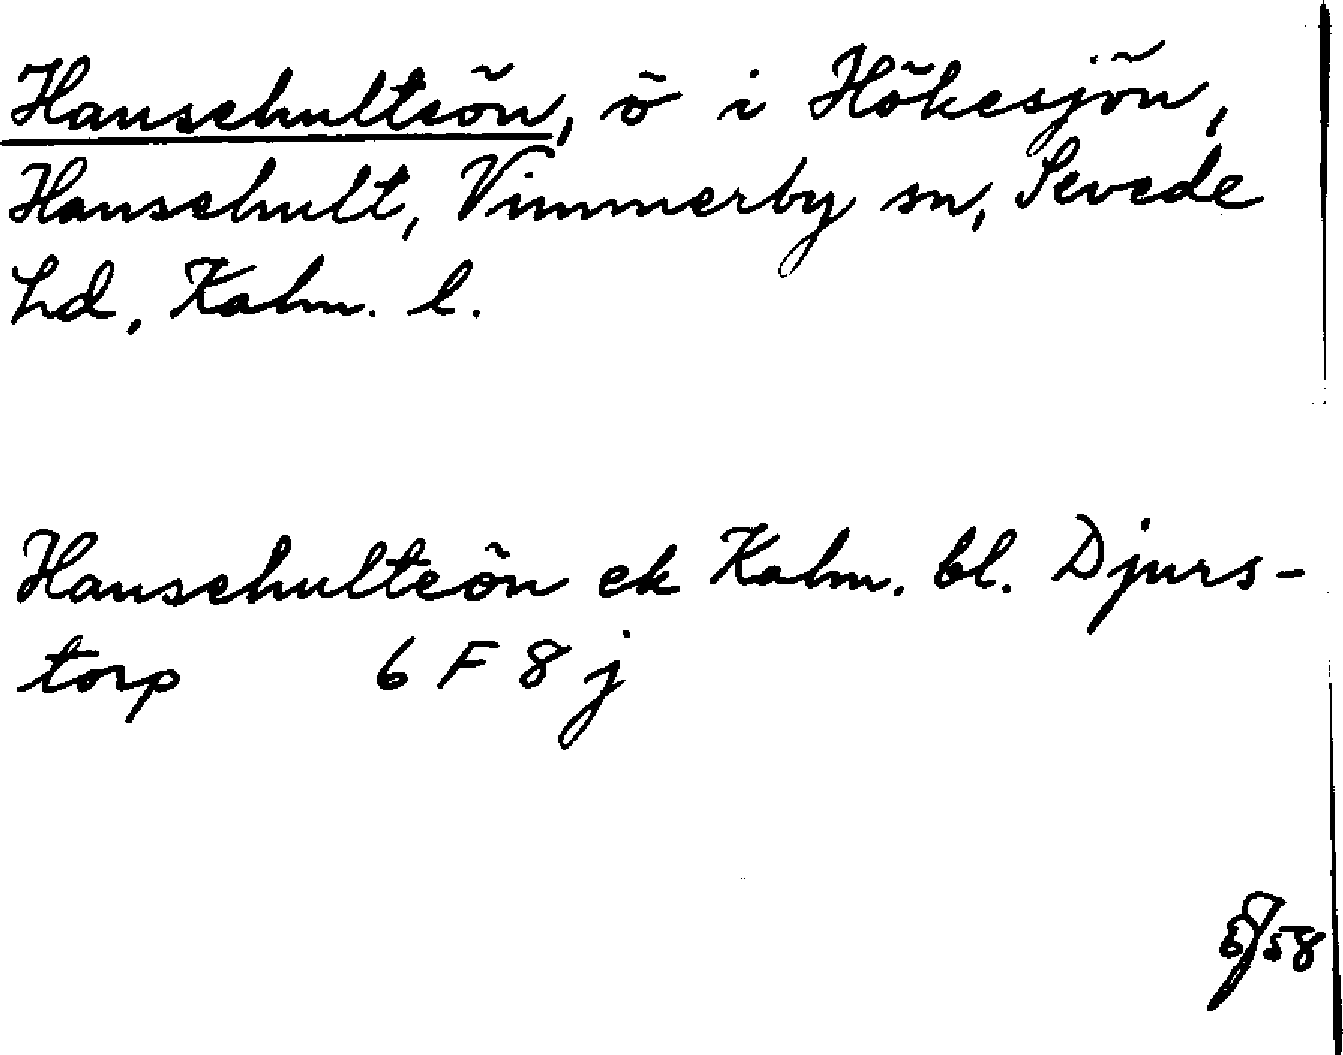 Hanschulteön, ö i Hökesjön,
Hanschult, Vimmerby sn, Sevede
hd, Kalm. l.
Hanschulteön ek Kalm. bl. Djurs-
torp 6 F 8 j
/58